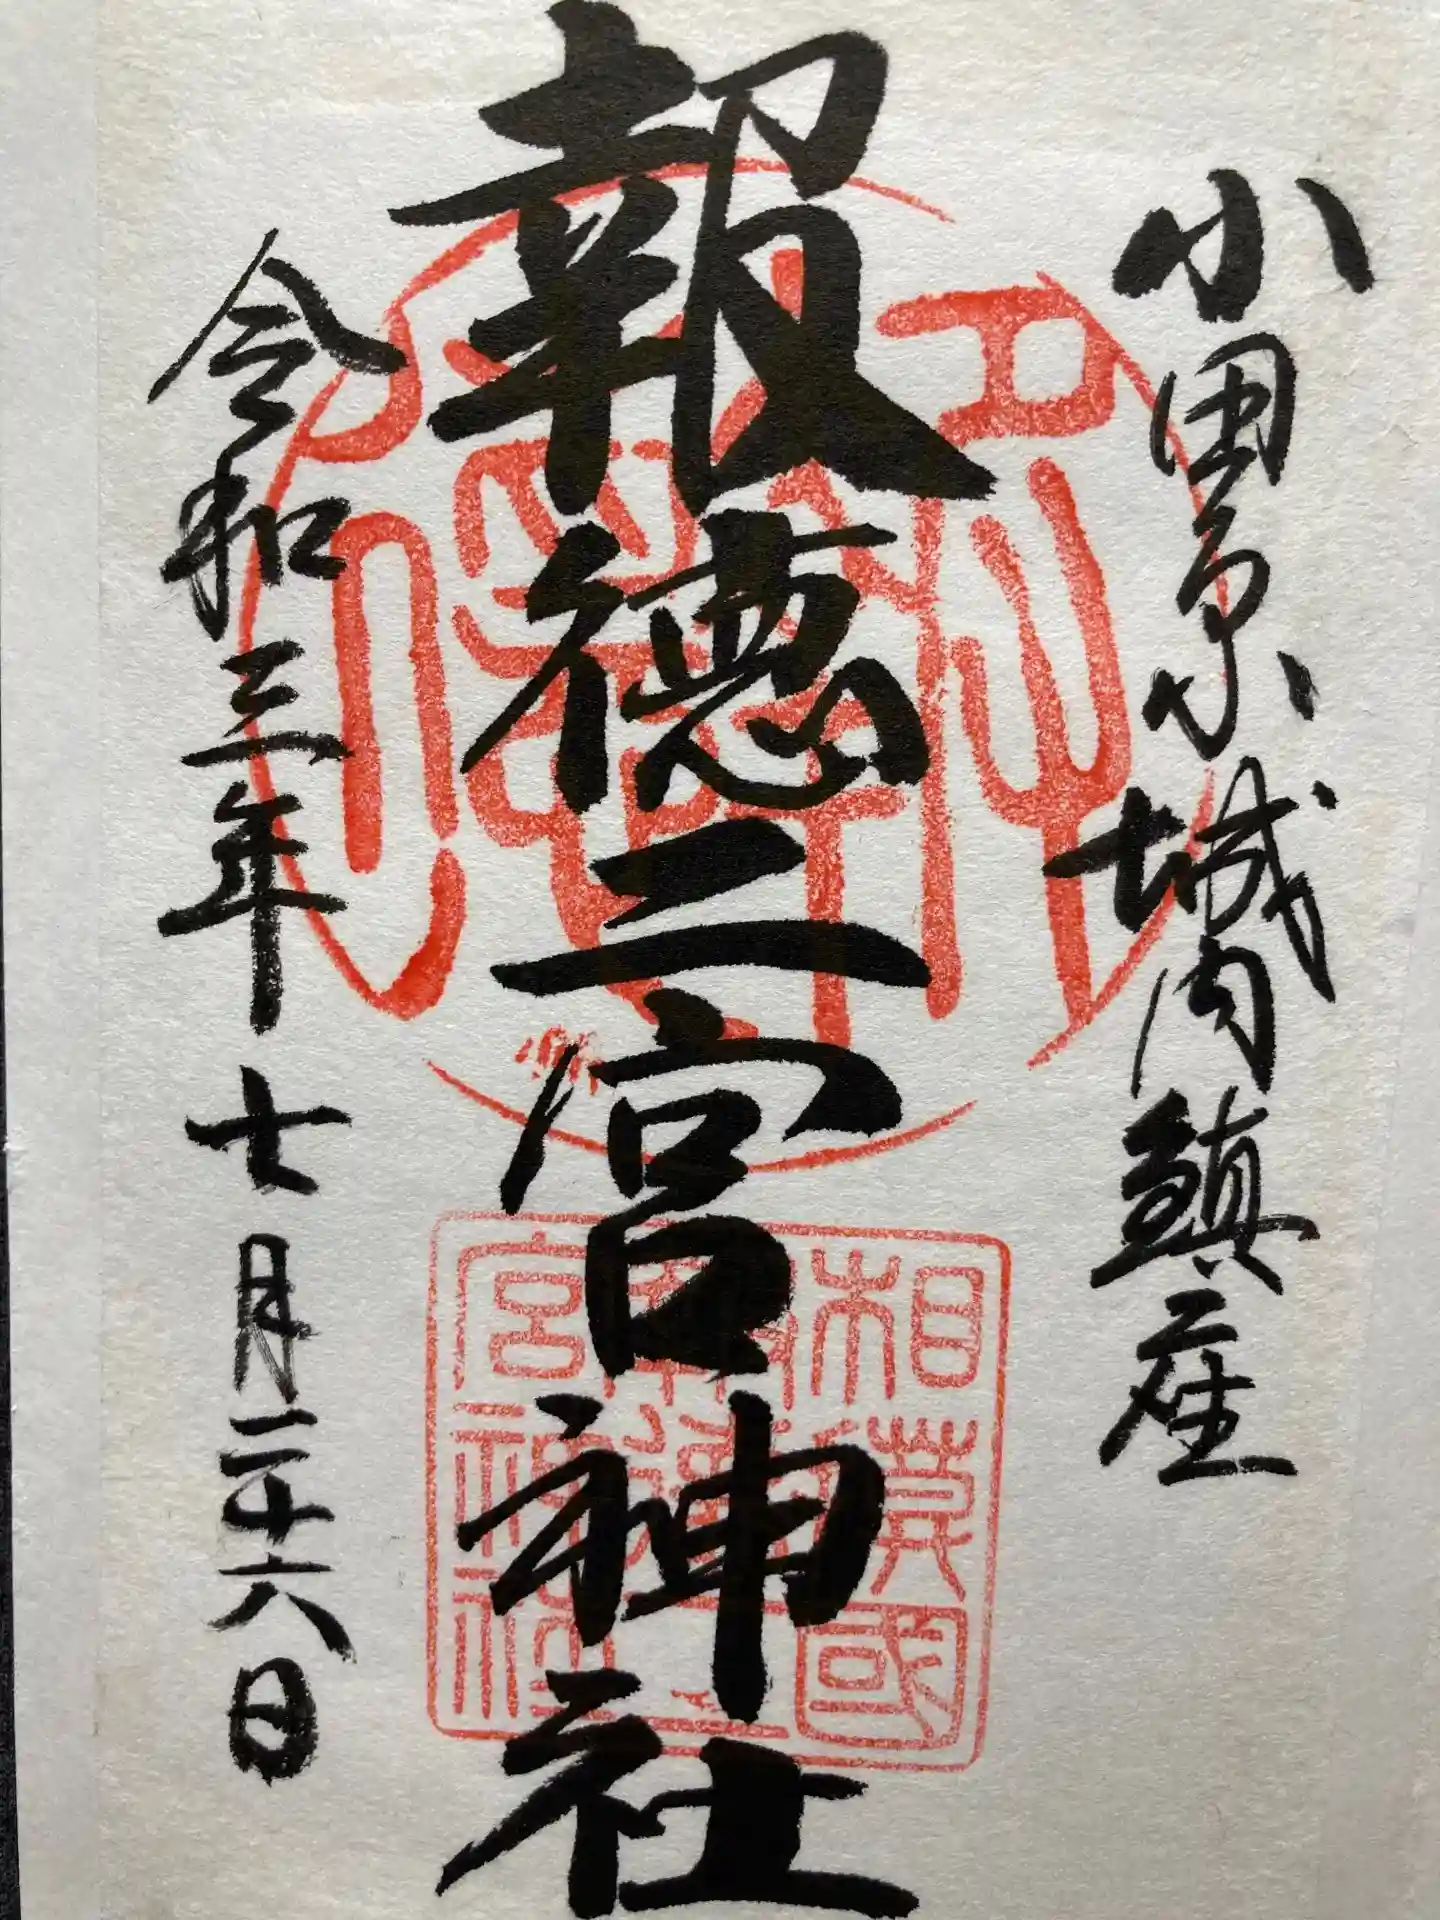 小田原城内鎮座
報徳二宮神社
令和三年七月二十六日
相莫國
報徳二
宮神社